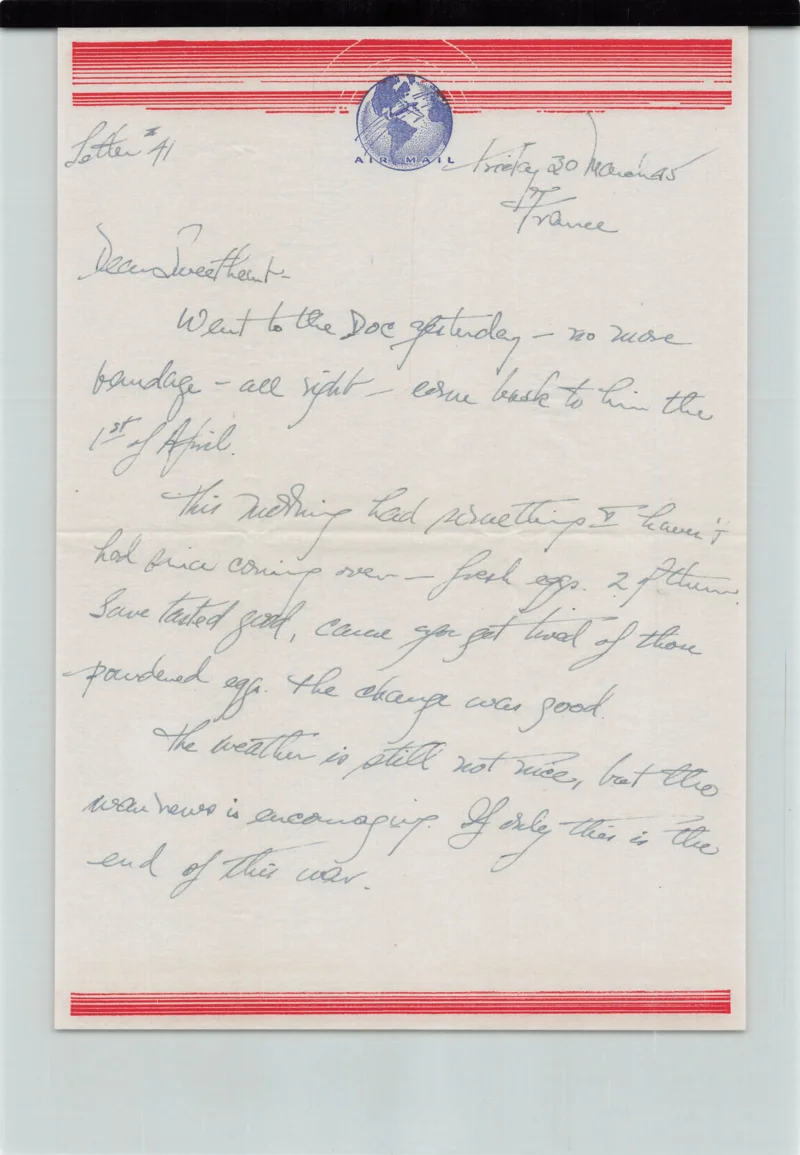 Letter # 41
AIR MAIL
Friday 30 March 45
France
Dear Sweetheart-
Went to the Doc yesterday - no more
bandage - all right - come back to him the
1st of April.
This morning had something I haven't
had since coming over - fresh eggs. 2 of them.
Sure tasted good, cause you get tired of those
powdered eggs. The change was good.
The weather is still not nice, but the
war news is encouraging. If only this is the
end of this war.